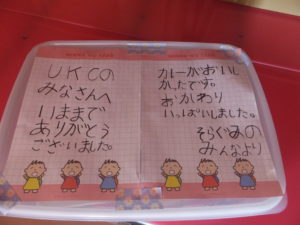 UKCの
みなさんへ
いままで
ありがとう
ございました。
カレーがおいし
かったです。
おかわり
いっぱいしました。
そらぐみの
みんなより